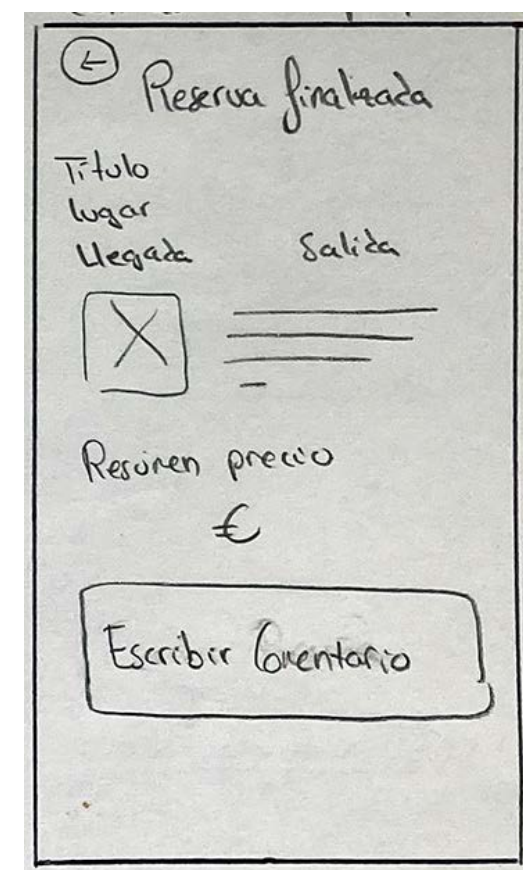 Reserva finalizada
Título
lugar
Llegada Salida
Resumen precio
€
Escribir Comentario